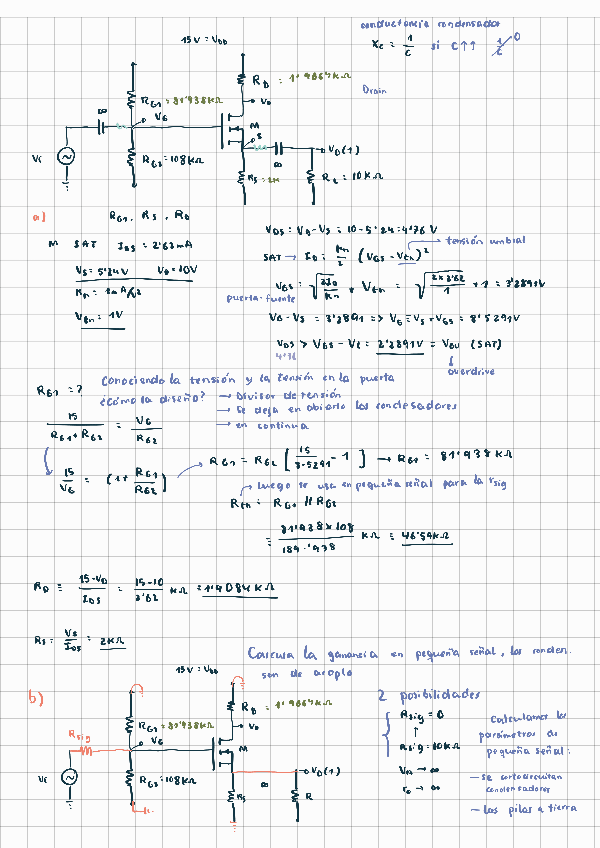 conductancia condensador
Xc = 1/C si C↑↑ 1/C → 0
15V = VDD
RD = 1'9084kΩ
Drain
RG1 = 81'938kΩ
VD
∞
VG
M
S
Vi
RG2 = 108kΩ
∞
VO(t)
RS = 2k
RL = 10kΩ
a)
RG1, RS, RD
M SAT IDS = 2'62mA
VS = 5'24V VD = 10V
Vtn = 1V
VDS = VD - VS = 10 - 5'24 = 4'76V
SAT → ID = Kn/2 (VGS - Vtn)² → tensión umbral
VGS = √(2ID/Kn) + Vtn = √(2×2'62/1) + 1 = 3'2891V
puerta-fuente
VG - VS = 3'2891 => VG = VS + VGS = 8'5291V
VDS > VGS - Vt = 2'2891V = VOV (SAT)
4'76
overdrive
RG1 = ?
Conociendo la tensión y la tensión en la puerta
¿cómo la diseño? → Divisor de tensión
→ Se deja en abierto los condesadores
→ en continua
15/(RG1+RG2) = VG/RG2
15/VG = (1 + RG1/RG2)
RG1 = RG2 [15/8.5291 - 1] → RG1 = 81'938kΩ
→ Luego se usa en pequeña señal para la rsig
Rth = RG1 // RG2
= 81'938×108/189.'938 kΩ = 46'59kΩ
RD = (15-VD)/IDS = (15-10)/2'62 kΩ = 1'9084kΩ
RS = VS/IDS = 2kΩ
Calcula la ganancia en pequeña señal, los conden.
son de acoplo
15V = VDD
b)
RD = 1'9084kΩ
2 posibilidades
Rsig
RG1 = 81'938kΩ
VD
VG
M
Rsig = 0
Rsig = 10kΩ
Calculamos los
parámetros de
pequeña señal:
VA → ∞
ro → ∞
Vi
RG2 = 108kΩ
VO(t)
∞
RS
R
— se cortocircuitan
condensadores
— las pilas a tierra